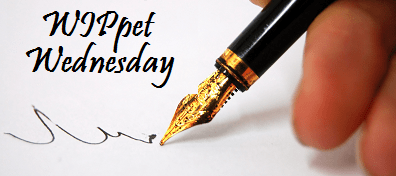 WIPpet
Wednesday